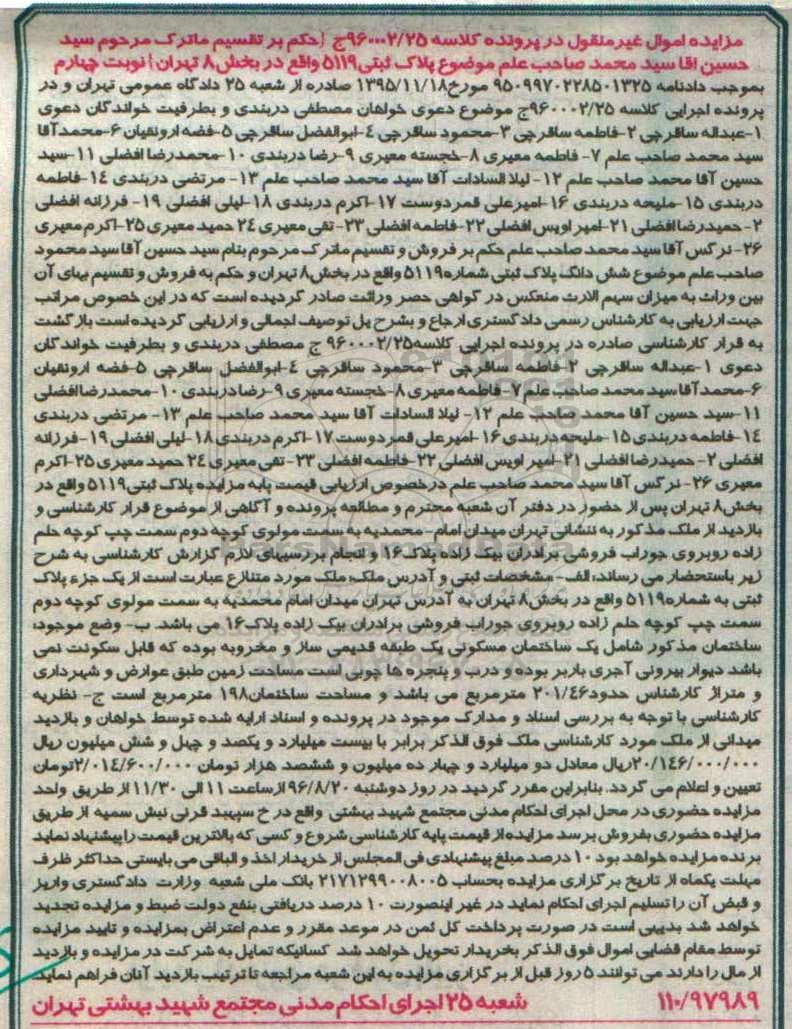 مزایده اموال غیرمنقول در پرونده کلاسه ۹۶۰۰۰۲/۲۵ج (حکم بر تقسیم ماترک مرحوم سید
حسین آقا سید محمد صاحب علم موضوع پلاک ثبتی۵۱۱۹ واقع در بخش۸ تهران) نوبت چهارم
بموجب دادنامه ۹۵۰۹۹۷۰۲۲۸۵۰۱۳۲۵ مورخ۱۳۹۵/۱۱/۱۸ صادره از شعبه ۲۵ دادگاه عمومی تهران و در
پرونده اجرایی کلاسه ۹۶۰۰۰۲/۲۵ج موضوع دعوی خواهان مصطفی دربندی و بطرفیت خواندگان دعوی
۱-عبداله ساقرچی ۲-فاطمه ساقرچی ۳-محمود ساقرچی ۴-ابوالفضل ساقرچی ۵-فضه ارونقیان ۶-محمدآقا
سید محمد صاحب علم ۷- فاطمه معیری ۸-خجسته معیری ۹-رضا دربندی ۱۰-محمدرضا افضلی ۱۱-سید
حسین آقا محمد صاحب علم ۱۲- لیلا السادات آقا سید محمد صاحب علم ۱۳- مرتضی دربندی ۱۴-فاطمه
دربندی ۱۵-ملیحه دربندی ۱۶-امیرعلی قمردوست ۱۷-اکرم دربندی ۱۸-لیلی افضلی ۱۹- فرزانه افضلی
۲-حمیدرضا افضلی ۲۱-امیر اویس افضلی ۲۲-فاطمه افضلی ۲۳-تقی معیری ۲۴ حمید معیری ۲۵-اکرم معیری
۲۶-نرگس آقا سید محمد صاحب علم حکم بر فروش و تقسیم ماترک مرحوم بنام سید حسین آقا سید محمود
صاحب علم موضوع شش دانگ پلاک ثبتی شماره۵۱۱۹ واقع در بخش۸ تهران و حکم به فروش و تقسیم بهای آن
بین وراث به میزان سهم الارث منعکس در گواهی حصر وراثت صادر گردیده است که در این خصوص مراتب
جهت ارزیابی به کارشناس رسمی دادگستری ارجاع و بشرح یل توصیف اجمالی و ارزیابی گردیده است بازگشت
به قرار کارشناسی صادره در پرونده اجرایی کلاسه۹۶۰۰۰۲/۲۵ ج مصطفی دربندی و بطرفیت خواندگان
دعوی ۱-عبداله ساقرچی ۲-فاطمه ساقرچی ۳-محمود ساقرچی ۴-ابوالفضل ساقرچی ۵-فضه ارونقیان
۶-محمدآقا سید محمد صاحب علم ۷-فاطمه معیری ۸-خجسته معیری ۹-رضا دربندی ۱۰-محمدرضا افضلی
۱۱-سید حسین آقا محمد صاحب علم ۱۲- لیلا السادات آقا سید محمد صاحب علم ۱۳- مرتضی دربندی
۱۴-فاطمه دربندی ۱۵-ملیحه دربندی ۱۶-امیرعلی قمردوست ۱۷-اکرم دربندی ۱۸-لیلی افضلی ۱۹-فرزانه
افضلی ۲-حمیدرضا افضلی ۲۱-امیر اویس افضلی ۲۲-فاطمه افضلی ۲۳-تقی معیری ۲۴ حمید معیری ۲۵-اکرم
معیری ۲۶-نرگس آقا سید محمد صاحب علم درخصوص ارزیابی قیمت پایه مزایده پلاک ثبتی۵۱۱۹ واقع در
بخش۸ تهران پس از حضور در دفتر آن شعبه محترم و مطالعه پرونده و آگاهی از موضوع قرار کارشناسی و
بازدید از ملک مذکور به نشانی تهران میدان امام محمدیه به سمت مولوی کوچه دوم سمت چپ کوچه حلم
زاده روبروی جوراب فروشی برادران بیک زاده پلاک۱۶ و انجام بررسیهای لازم گزارش کارشناسی به شرح
زیر باستحضار می رساند: الف- مشخصات ثبتی و آدرس ملک: ملک مورد متنازع عبارت است از یک جزء پلاک
ثبتی به شماره۵۱۱۹ واقع در بخش۸ تهران به آدرس تهران میدان امام محمدیه به سمت مولوی کوچه دوم
سمت چپ کوچه حلم زاده روبروی جوراب فروشی برادران بیک زاده پلاک۱۶ می باشد. ب- وضع موجود:
ساختمان مذکور شامل یک ساختمان مسکونی یک طبقه قدیمی ساز و مخروبه بوده که قابل سکونت نمی
باشد دیوار بیرونی آجری باربر بوده و درب و پنجره ها چوبی است مساحت زمین طبق عوارض و شهرداری
و متراژ کارشناس حدود۲۰۱/۴۶ مترمربع می باشد و مساحت ساختمان۱۹۸ مترمربع است ج- نظریه
کارشناسی با توجه به بررسی اسناد و مدارک موجود در پرونده و اسناد ارایه شده توسط خواهان و بازدید
میدانی از ملک مورد کارشناسی ملک فوق الذکر برابر با بیست میلیارد و یکصد و چهل و شش میلیون ریال
۲۰/۱۴۶/۰۰۰/۰۰۰ریال معادل دو میلیارد و چهار ده میلیون و ششصد هزار تومان ۲/۰۱۴/۶۰۰/۰۰۰تومان
تعیین و اعلام می گردد. بنابراین مقرر گردید در روز دوشنبه ۹۶/۸/۲۰ ازساعت ۱۱ الی ۱۱/۳۰ از طریق واحد
مزایده حضوری در محل اجرای احکام مدنی مجتمع شهید بهشتی واقع در خ سپهبد قرنی نبش سمیه از طریق
مزایده حضوری بفروش برسد مزایده از قیمت پایه کارشناسی شروع و کسی که بالاترین قیمت را پیشنهاد نماید
برنده مزایده خواهد بود ۱۰ درصد مبلغ پیشنهادی فی المجلس از خریدار اخذ و الباقی می بایستی حداکثر ظرف
مهلت یکماه از تاریخ برگزاری مزایده بحساب ۲۱۷۱۲۹۹۰۰۸۰۰۵ بانک ملی شعبه وزارت دادگستری واریز
و قبض آن را تسلیم اجرای احکام نماید در غیر اینصورت ۱۰ درصد دریافتی بنفع دولت ضبط و مزایده تجدید
خواهد شد بدیهی است در صورت پرداخت کل ثمن در موعد مقرر و عدم اعتراض بمزایده و تایید مزایده
توسط مقام قضایی اموال فوق الذکر بخریدار تحویل خواهد شد کسانیکه تمایل به شرکت در مزایده و بازدید
از مال را دارند می توانند ۵ روز قبل از برگزاری مزایده به این شعبه مراجعه تا ترتیب بازدید آنان فراهم نماید
۱۱۰/۹۷۹۸۹ شعبه ۲۵ اجرای احکام مدنی مجتمع شهید بهشتی تهران